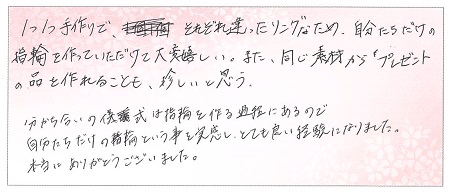 1つ1つ手作りで、それぞれ違ったリングなため、自分たちだけの
指輪を作っていただけて大変嬉しい。また、同じ素材からプレゼント
の品を作れることも、珍しいと思う.
分かち合いの儀式は指輪を作る過程にあるので
自分たちだけの指輪という事を実感し、とても良い経験になりました。
本当にありがとうございました。